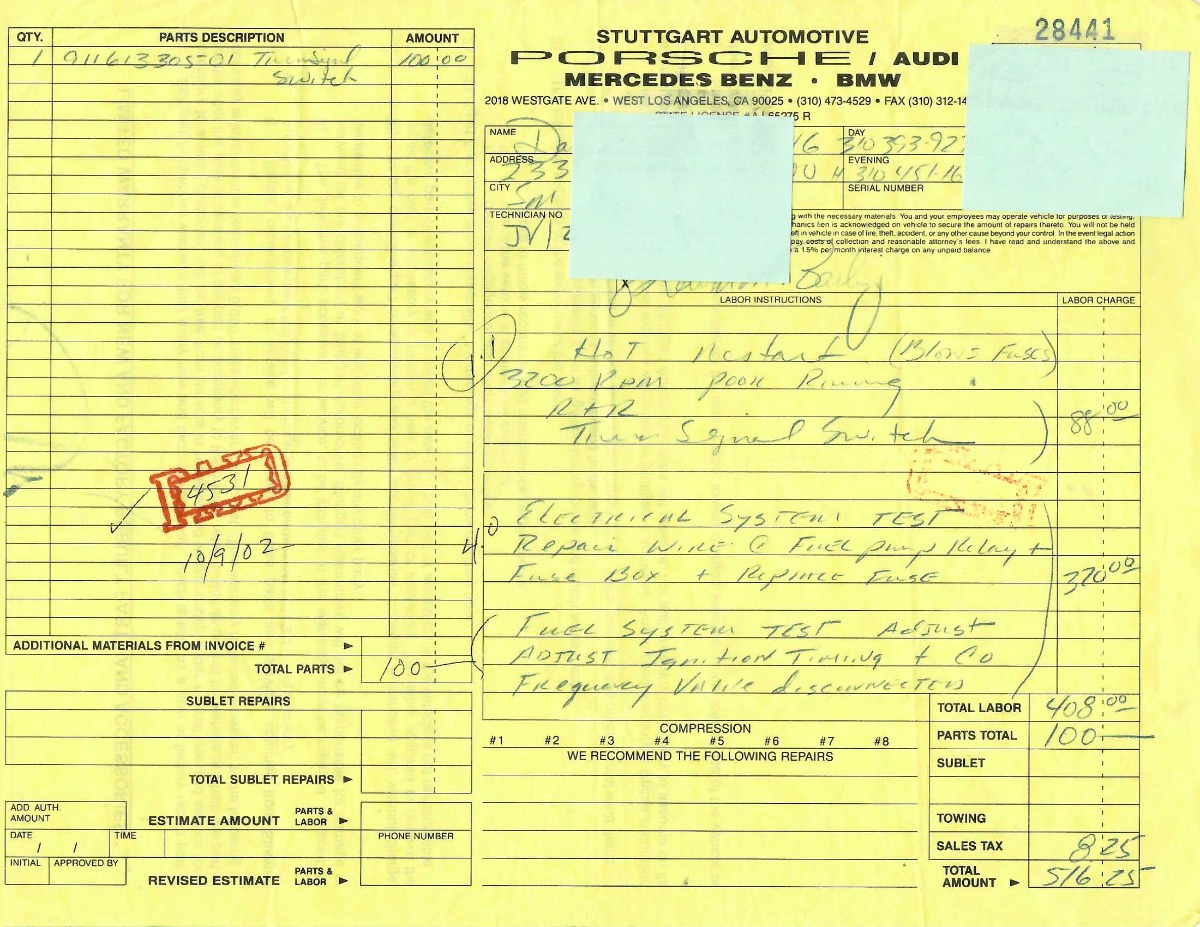 28441
STUTTGART AUTOMOTIVE
PORSCHE / AUDI
MERCEDES BENZ • BMW
2018 WESTGATE AVE. • WEST LOS ANGELES, CA 90025 • (310) 473-4529 • FAX (310) 312-14
QTY. PARTS DESCRIPTION AMOUNT
1 911613305-01 Turn Signl 100 00
Switch
NAME Da
DAY 310 393-927
ADDRESS 233
EVENING H 310 451-16
CITY SM
SERIAL NUMBER
TECHNICIAN NO.
JV/2
g with the necessary materials. You and your employees may operate vehicle for purposes of testing,
hanics lien is acknowledged on vehicle to secure the amount of repairs thereto. You will not be held
eft in vehicle in case of fire, theft, accident, or any other cause beyond your control. In the event legal action
pay costs of collection and reasonable attorney's fees. I have read and understand the above and
a 1.5% per month interest charge on any unpaid balance
X
LABOR INSTRUCTIONS LABOR CHARGE
1.1 HOT Restart (Blows Fuses)
3200 RPM poor Running
R+R
Turn Signal Switch 88.00
4531
10/9/02
4.0 ELECTRICAL SYSTEM TEST
Repair WIRE @ FUEL pump Relay +
FUSE BOX + REPLACE FUSE 320 00
FUEL SYSTEM TEST Adjust
ADJUST Ignition Timing + CO
Frequency Valve disconnected
ADDITIONAL MATERIALS FROM INVOICE #
TOTAL PARTS 100
SUBLET REPAIRS
TOTAL SUBLET REPAIRS
ADD. AUTH. AMOUNT
ESTIMATE AMOUNT PARTS & LABOR
DATE / / TIME
PHONE NUMBER
INITIAL APPROVED BY
REVISED ESTIMATE PARTS & LABOR
COMPRESSION
#1 #2 #3 #4 #5 #6 #7 #8
WE RECOMMEND THE FOLLOWING REPAIRS
TOTAL LABOR 408.00
PARTS TOTAL 100
SUBLET
TOWING
SALES TAX 8 25
TOTAL AMOUNT 516 25